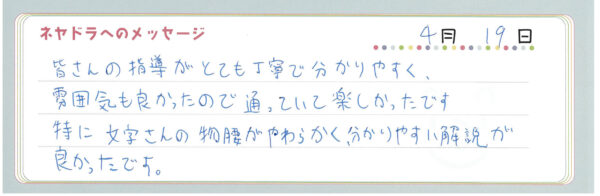 ネヤドラへのメッセージ 4月 19日
皆さんの指導がとても丁寧で分かりやすく、
雰囲気も良かったので通っていて楽しかったです
特に文字さんの物腰がやわらかく、分かりやすい解説が
良かったです。